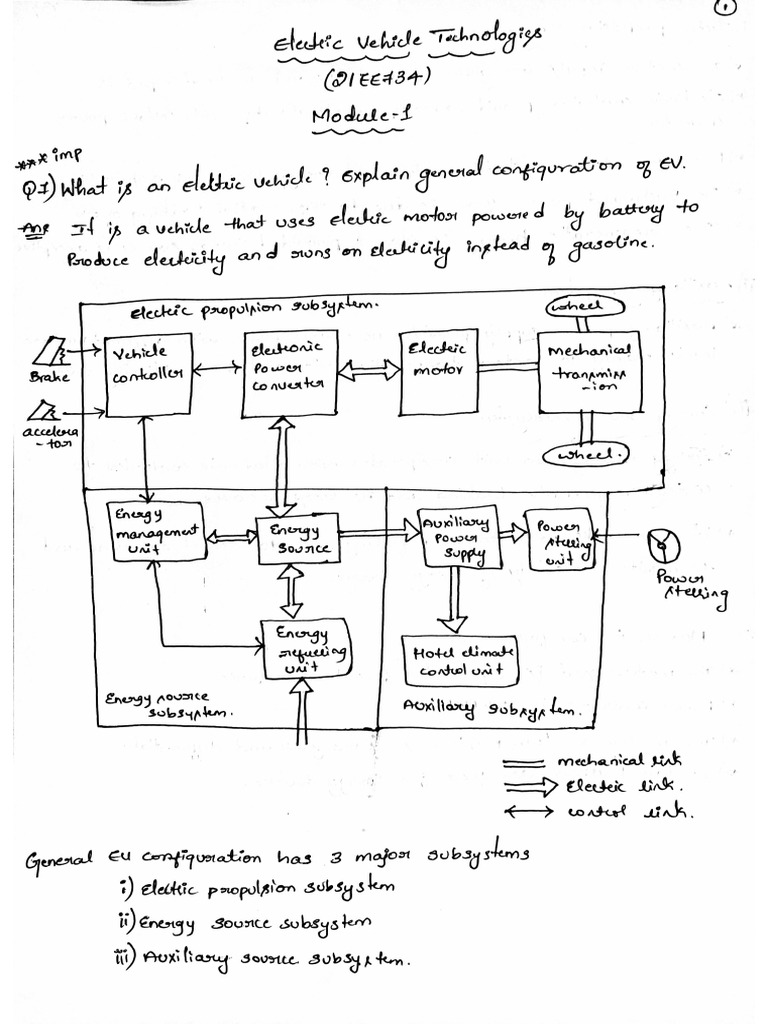 1
Electric Vehicle Technologies
(21EE734)
Module-1
*** imp
Q1) What is an electric vehicle? Explain general configuration of EV.
Ans It is a vehicle that uses electric motor powered by battery to
Produce electricity and runs on electricity instead of gasoline.
Electric propulsion subsystem.
wheel
Brake
Vehicle
controller
Electronic
Power
converter
Electric
motor
Mechanical
transmiss
-ion
accelera
-tor
wheel.
Energy
management
unit
Energy
source
Auxiliary
power
supply
Power
steering
unit
Power
steering
Energy
refuelling
unit
Hotel climate
control unit
Energy source
subsystem.
Auxiliary subsystem.
mechanical link
Electric link.
control link.
General EV configuration has 3 major subsystems
i) Electric propulsion subsystem
ii) Energy source subsystem
iii) Auxiliary source subsystem.